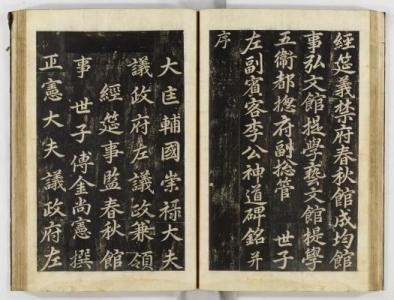 經筵義禁府春秋館成均館
事弘文館提學藝文館提學
五衛都摠府副摠管　世子
左副賓客李公神道碑銘并
序
大匡輔國崇祿大夫
議政府左議政兼領
經筵事監春秋館
事　世子傅金尙憲撰
正憲大夫議政府左